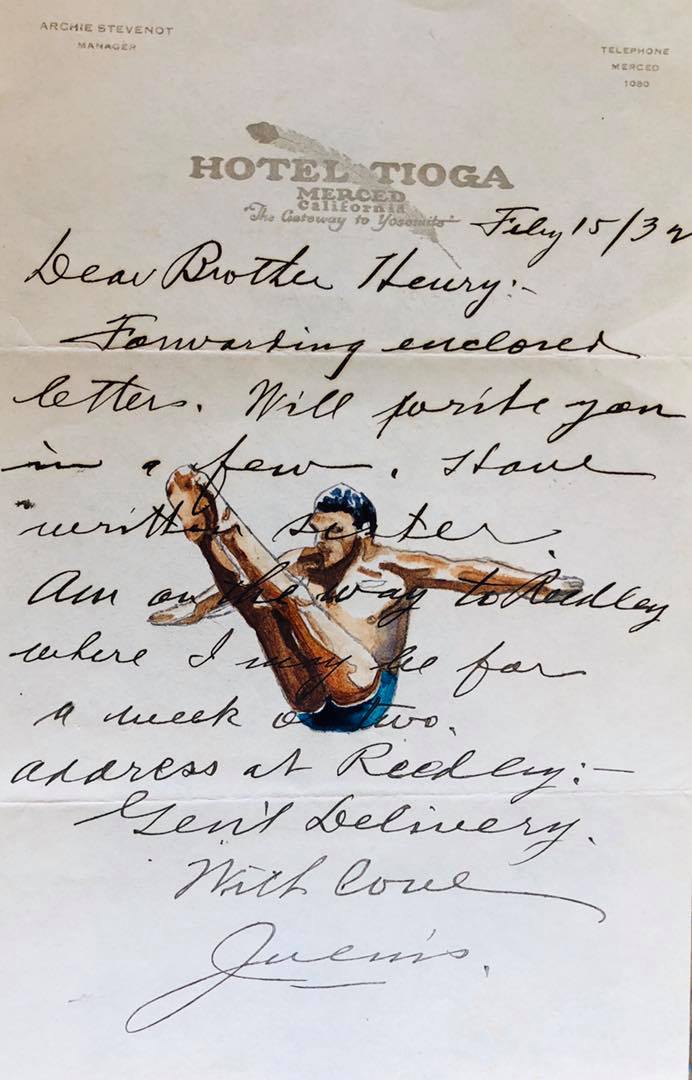 ARCHIE STEVENOT
MANAGER
TELEPHONE
MERCED
1080
HOTEL TIOGA
MERCED
California
"The Gateway to Yosemite"
Feby 15/32
Dear Brother Henry:-
Forwarding enclosed
letters. Will write you
in a few. Have
written sister
Am on the way to Reedley
where I may be for
a week or two.
address at Reedley:-
Gen'l Delivery.
With Love